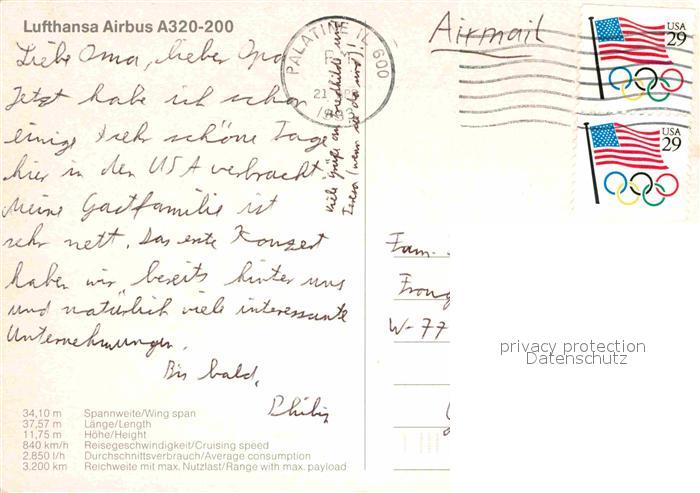 Lufthansa Airbus A320-200
Liebe Oma, lieber Opa
Jetzt habe ich schon
einige sehr schöne Tage
hier in den USA verbracht.
Meine Gastfamilie ist
sehr nett. Das erste Konzert
haben wir bereits hinter uns
und natürlich viele interessante
Unternehmungen.
Bis bald,
Philip
Viele Grüße an Friedhilde und
(wenn sie da sind)!
34,10 m Spannweite/Wing span
37,57 m Länge/Length
11,75 m Höhe/Height
840 km/h Reisegeschwindigkeit/Cruising speed
2.850 l/h Durchschnittsverbrauch/Average consumption
3.200 km Reichweite mit max. Nutzlast/Range with max. payload
PALATINE IL 600
21
Airmail
USA
29
USA
29
Fam.
W-77
privacy protection
Datenschutz